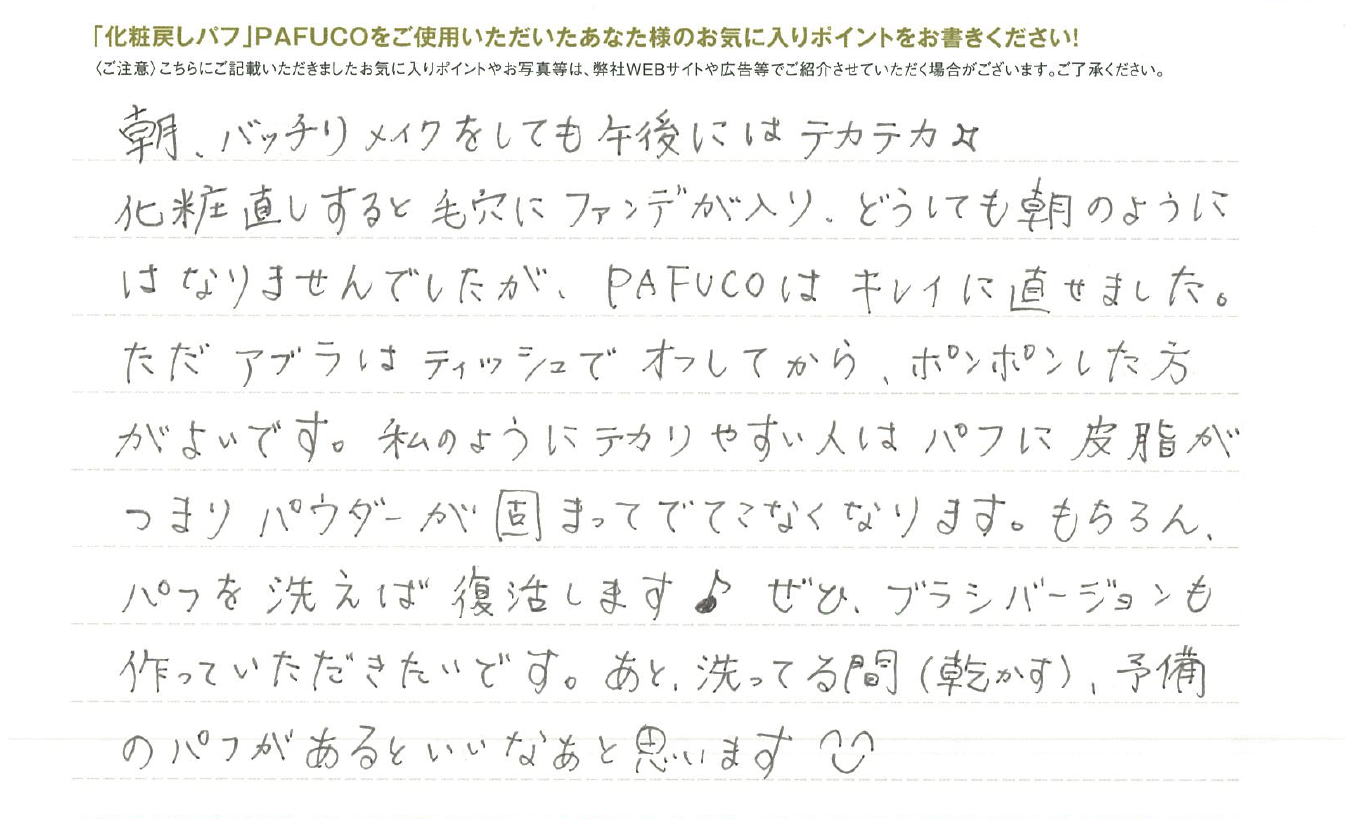 「化粧戻しパフ」PAFUCOをご使用いただいたあなた様のお気に入りポイントをお書きください!
〈ご注意〉こちらにご記載いただきましたお気に入りポイントやお写真等は、弊社WEBサイトや広告等でご紹介させていただく場合がございます。ご了承ください。
朝、バッチリメイクをしても午後にはテカテカ☆
化粧直しすると毛穴にファンデが入り、どうしても朝のように
はなりませんでしたが、PAFUCOはキレイに直せました。
ただアブラはティッシュでオフしてから、ポンポンした方
がよいです。私のようにテカリやすい人はパフに皮脂が
つまりパウダーが固まってでてこなくなります。もちろん、
パフを洗えば復活します♪ ぜひ、ブラシバージョンも
作っていただきたいです。あと、洗ってる間(乾かす)、予備
のパフがあるといいなぁと思います